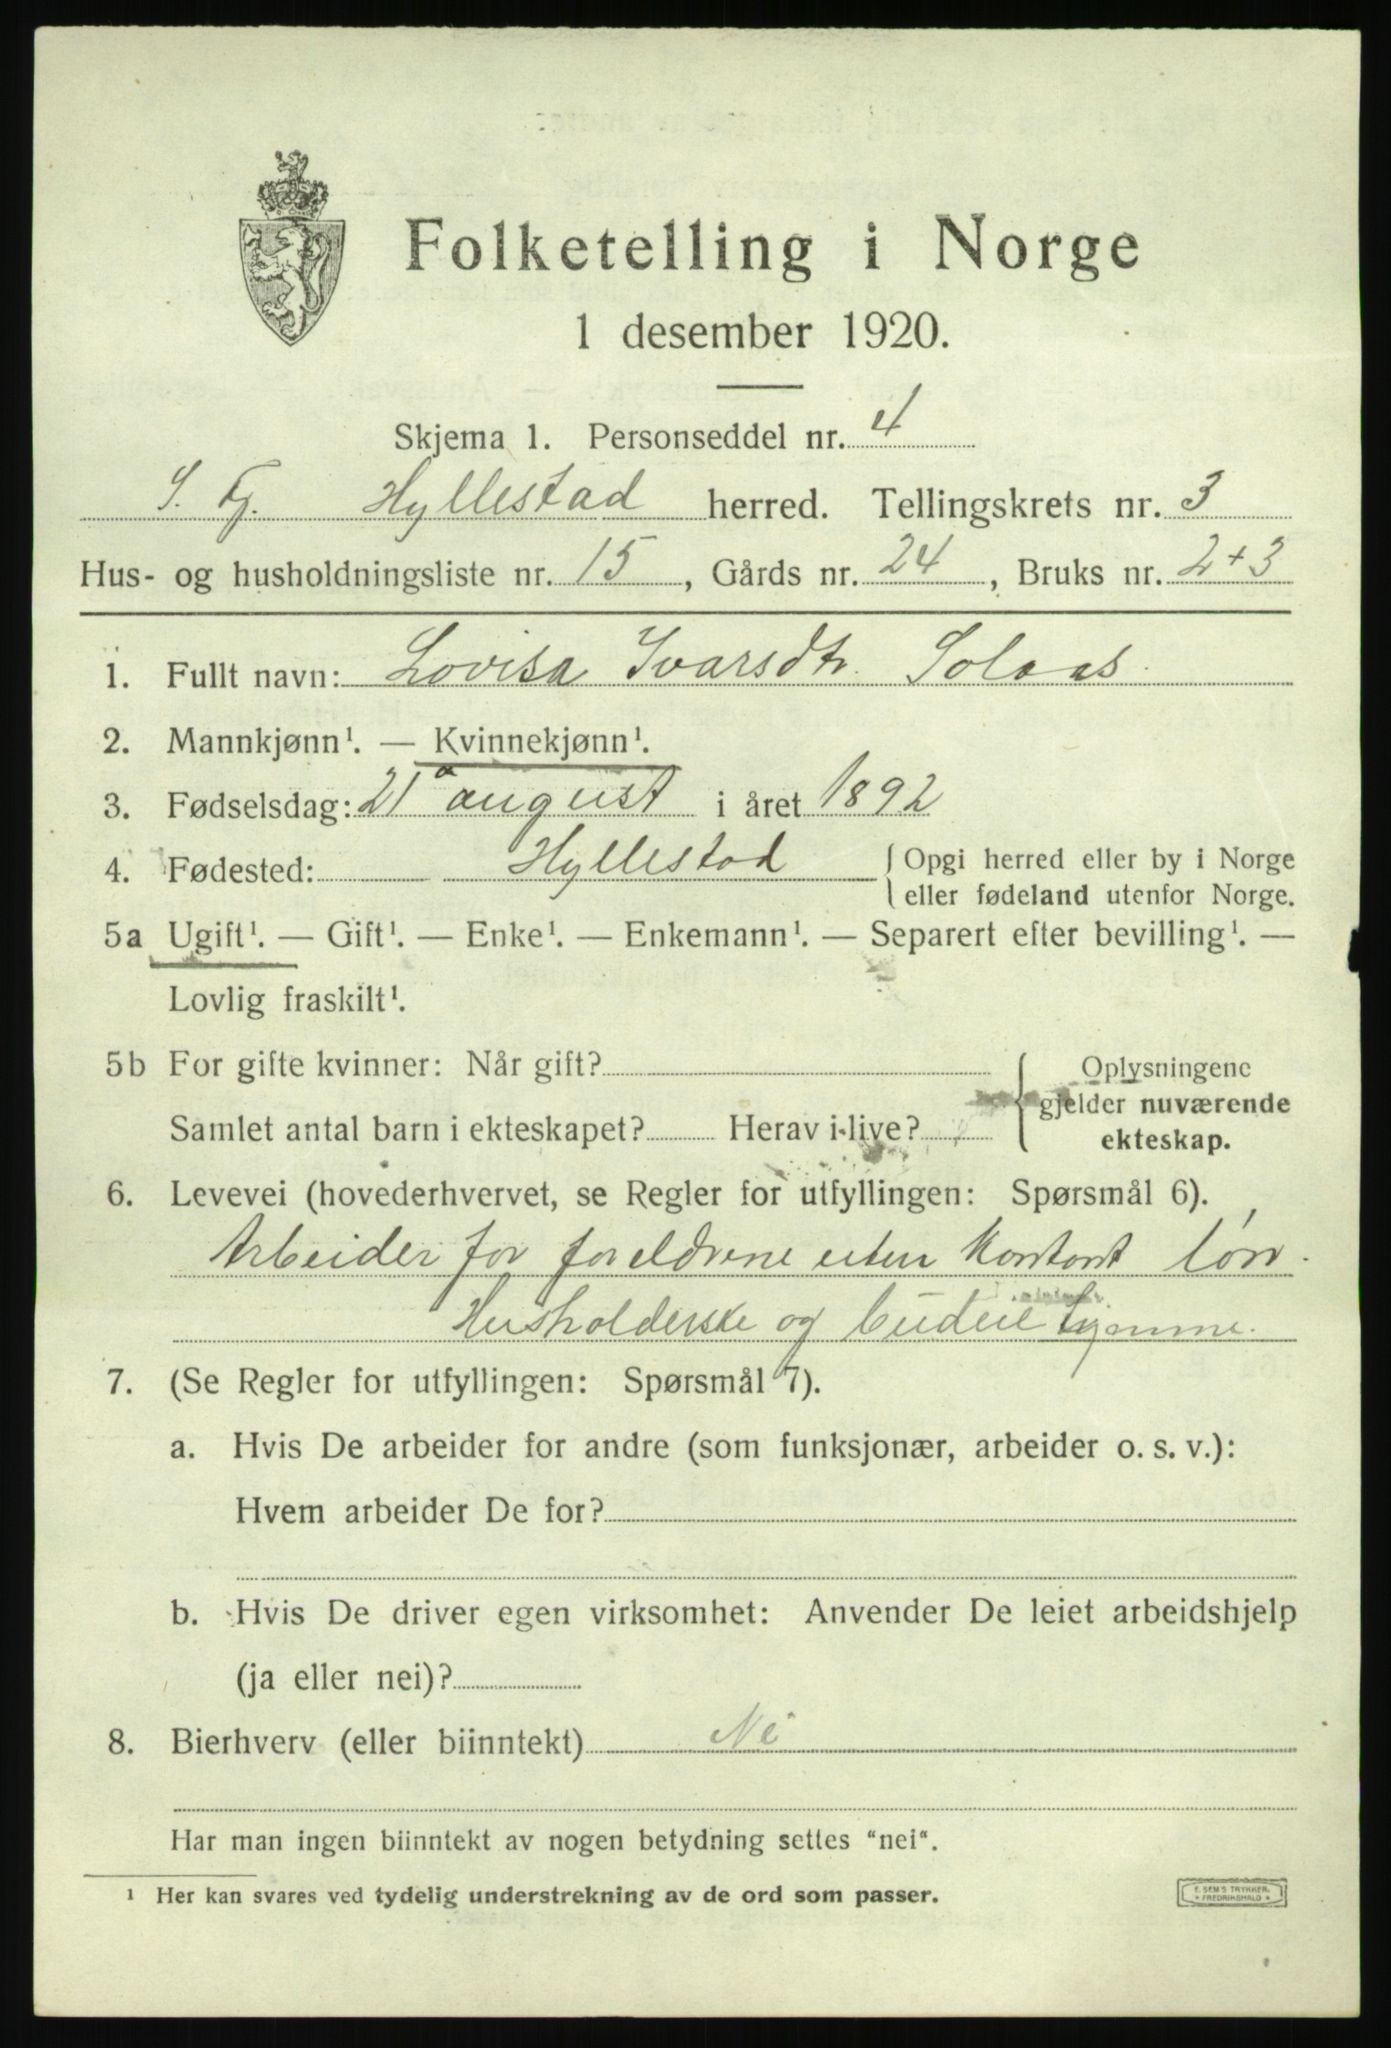 Folketelling i Norge
1 desember 1920.
Skjema 1. Personseddel nr. 4
S. Fj. Hyllestad herred. Tellingskrets nr. 3
Hus- og husholdningsliste nr. 15, Gårds nr. 24, Bruks nr. 2+3
1. Fullt navn: Lovisa Ivarsdtr. Solaas.
2. Mannkjønn¹. — Kvinnekjønn¹.
3. Fødselsdag: 21 august i året 1892
4. Fødested: Hyllestad {Opgi herred eller by i Norge
eller fødeland utenfor Norge.
5a Ugift¹. — Gift¹. — Enke¹. — Enkemann¹. — Separert efter bevilling¹. —
Lovlig fraskilt¹.
5b For gifte kvinner: Når gift? Oplysningene
gjelder nuværende
Samlet antal barn i ekteskapet? Herav i live? ekteskap.
6. Levevei (hovederhvervet, se Regler for utfyllingen: Spørsmål 6).
Arbeider for forældrene uten kontant løn.
Husholderske og budeie hjemme.
7. (Se Regler for utfyllingen: Spørsmål 7).
a. Hvis De arbeider for andre (som funksjonær, arbeider o. s. v.):
Hvem arbeider De for?
b. Hvis De driver egen virksomhet: Anvender De leiet arbeidshjelp
(ja eller nei)?
8. Bierhverv (eller biinntekt) Nei
Har man ingen biinntekt av nogen betydning settes "nei".
¹ Her kan svares ved tydelig understrekning av de ord som passer.
E. SEM'S TRYKKERI
FREDRIKSHALD